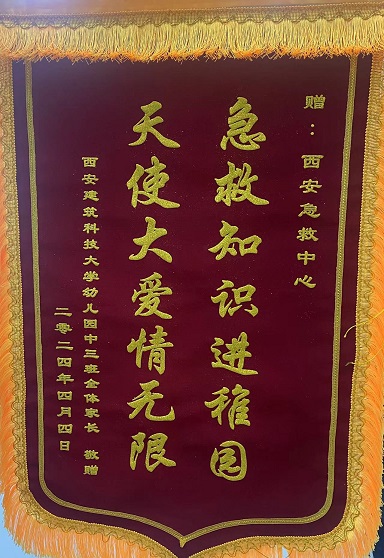 赠：西安急救中心
急救知识进稚园
天使大爱情无限
西安建筑科技大学幼儿园中三班全体家长 敬赠
二零二四年四月四日